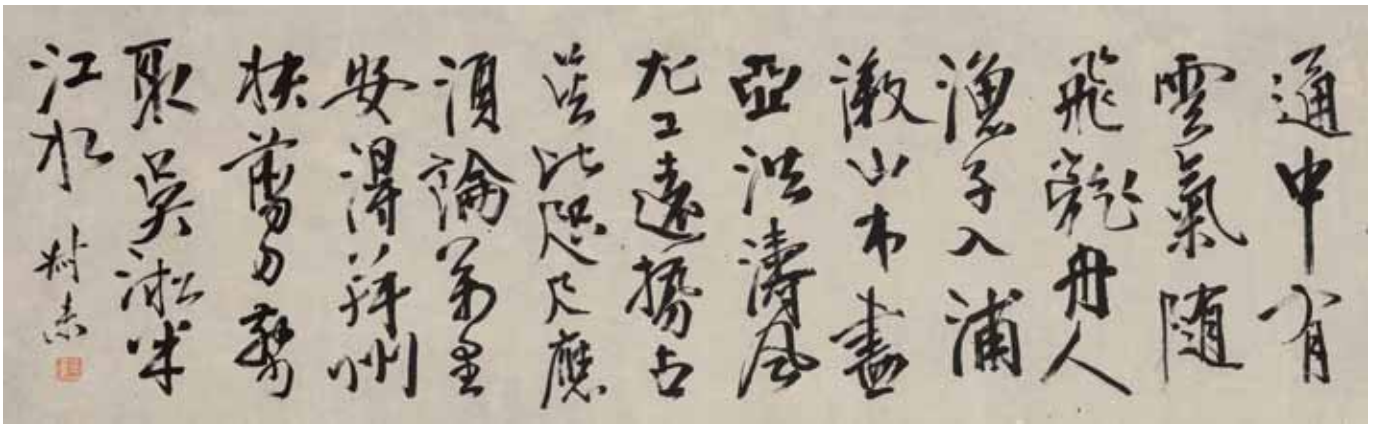 通中有
雲氣随
飛龍舟人
漁子入浦
漵山木盡
亞洪濤風
尤工遠勢古
莫比咫尺應
須論萬里
安得并州
快剪刀剪
取吳淞半
江水